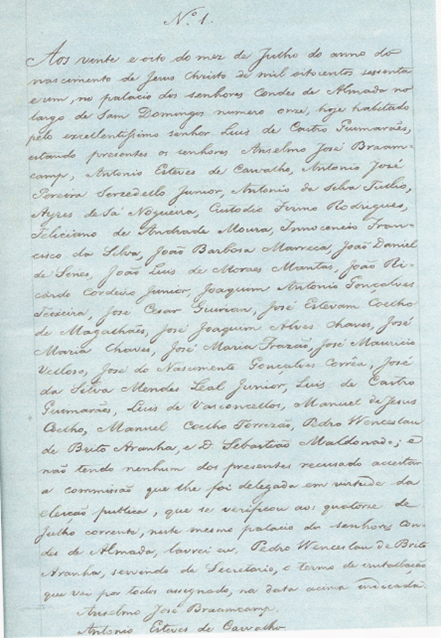 Nº 1.
Aos vente e oito do mez de Julho do anno do
nascimento de Jesus Christo de mil oitocentos sessenta
e um, no palacio dos senhores Condes de Almada no
largo de Sam Domingos numero onze, hoje habitado
pelo excellentissimo senhor Luis de Castro Guimarães,
estando presentes os senhores Anselmo José Braam-
camp, Antonio Esteves de Carvalho, Antonio José
Pereira Serzedello Junior, Antonio da Silva Tullio,
Ayres de Sá Nogueira, Custodio Firmo Rodrigues,
Feliciano de Andrade Moura, Innocencio Fran-
cisco da Silva, João Barbosa Marreca, João Daniel
de Sines, João Luis de Moraes Mantas, João Ri-
cardo Cordeiro Junior, Joaquim Antonio Gonçalves
Teixeira, José Cesar, José Estevam Coelho
de Magalhães, José Joaquim Alves Chaves, José
Maria Chaves, José Maria Frazão, José Mauricio
Velloso, José do Nascimento Gonçalves Corrêa, José
da Silva Mendes Leal Junior, Luis de Castro
Guimarães, Luis de Vasconcellos, Manuel de Jesus
Coelho, Manuel Coelho Torrezão, Pedro Wenceslau
de Brito Aranha, e D. Sebastião Maldonado; e
não tendo nenhum dos presentes recusado acceitar
a commissão que lhe foi delegada em virtude da
eleição publica, que se verificou aos quatorze de
Julho corrente, neste mesmo palacio do senhores Con-
des de Almada, lavrei eu, Pedro Wenceslau de Brito
Aranha, servendo de Secretario, o termo de installação
que vai por todos assignado, na data acima indicada.
Anselmo José Braamcamp.
Antonio Esteves de Carvalho